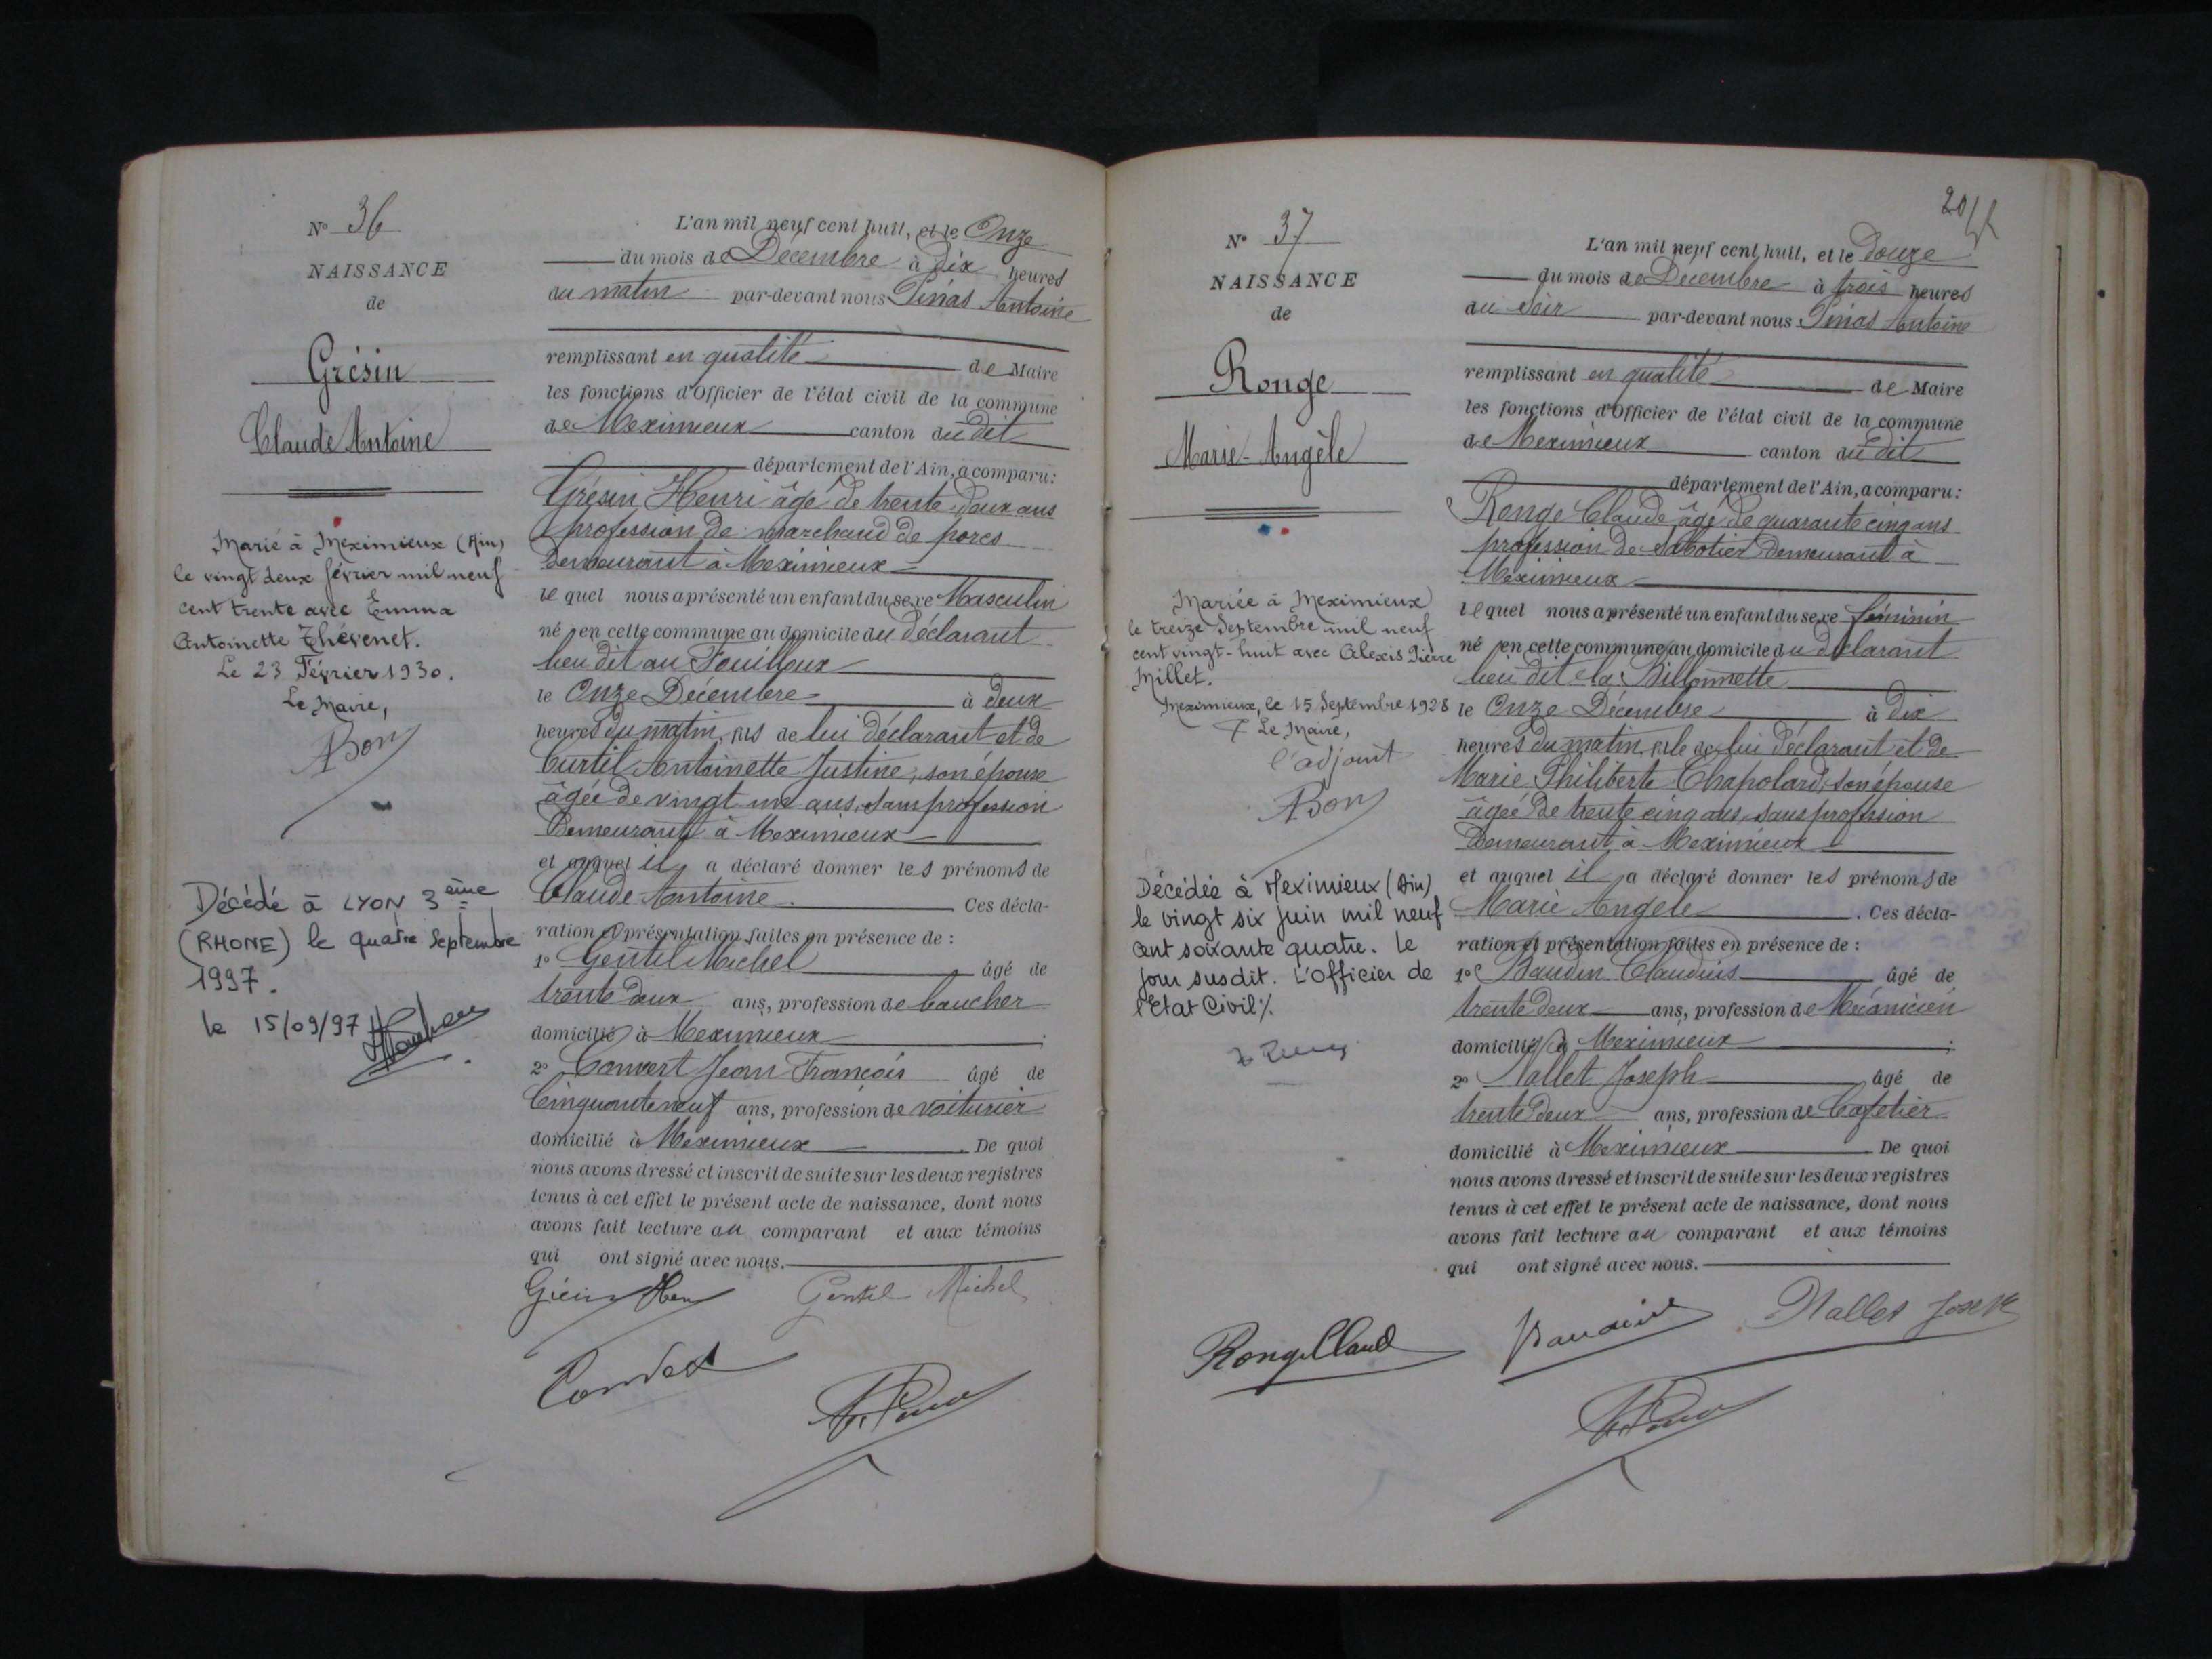 N° 36
NAISSANCE
de
Grésin
Claude Antoine
Marié à Meximieux (Ain)
le vingt deux février mil neuf
cent trente avec Emma
Antoinette Thévenet.
Le 23 Février 1930.
Le Maire,
Décédé à LYON 3ème
(RHONE) le quatre Septembre
1997.
le 15/09/97
L'an mil neuf cent huit, et le Onze
du mois de Décembre à dix heures
du matin par-devant nous Pinas Antoine
remplissant en qualité de Maire
les fonctions d'Officier de l'état civil de la commune
de Meximieux canton du dit
département de l'Ain, a comparu:
Grésin Henri âgé de trente deux ans
profession de marchand de porcs
demeurant à Meximieux
le quel nous a présenté un enfant du sexe Masculin
né en cette commune au domicile du déclarant
lieu dit au Fouilloux
le Onze Décembre à deux
heures du matin, fils de lui déclarant et de
Curtil Antoinette Justine, son épouse
âgée de vingt un ans, sans profession
demeurant à Meximieux
et auquel il a déclaré donner les prénoms de
Claude Antoine. Ces décla-
ration et présentation faites en présence de :
1° Gentil Michel âgé de
trente deux ans, profession de boucher
domicilié à Meximieux ;
2° Convert Jean François âgé de
Cinquante neuf ans, profession de voiturier
domicilié à Meximieux. De quoi
nous avons dressé et inscrit de suite sur les deux registres
tenus à cet effet le présent acte de naissance, dont nous
avons fait lecture au comparant et aux témoins
qui ont signé avec nous.
Gentil Michel
20
N° 37
NAISSANCE
de
Ronge
Marie-Angèle
Mariée à Meximieux
le treize Septembre mil neuf
cent vingt-huit avec Alexis Pierre
Millet.
Meximieux, le 15 Septembre 1928
Le Maire,
l'adjoint
Décédée à Meximieux (Ain)
le vingt six juin mil neuf
cent soixante quatre. Le
jour susdit. L'officier de
l'Etat Civil%.
L'an mil neuf cent huit, et le douze
du mois de Décembre à trois heures
du soir par-devant nous Pinas Antoine
remplissant en qualité de Maire
les fonctions d'Officier de l'état civil de la commune
de Meximieux canton du dit
département de l'Ain, a comparu:
Ronge Claude âgé de quarante cinq ans
profession de Sabotier demeurant à
Meximieux
lequel nous a présenté un enfant du sexe féminin
né en cette commune au domicile du déclarant
lieu dit la Billonnette
le Onze Décembre à dix
heures du matin, fille de lui déclarant et de
Marie Philiberte Chapolard, son épouse
âgée de trente cinq ans, sans profession
demeurant à Meximieux
et auquel il a déclaré donner les prénoms de
Marie Angele. Ces décla-
ration et présentation faites en présence de :
1° Baudin Claudius âgé de
trente deux ans, profession de Mécanicien
domicilié à Meximieux ;
2° Nallet Joseph âgé de
trente deux ans, profession de Cafetier
domicilié à Meximieux. De quoi
nous avons dressé et inscrit de suite sur les deux registres
tenus à cet effet le présent acte de naissance, dont nous
avons fait lecture au comparant et aux témoins
qui ont signé avec nous.
Ronge Claud
Nallet Joseph